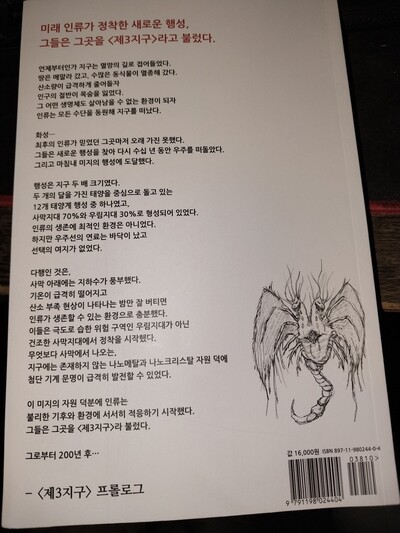 미래 인류가 정착한 새로운 행성,
그들은 그곳을 <제3지구>라고 불렀다.
언제부터인가 지구는 멸망의 길로 접어들었다.
땅은 메말라 갔고, 수많은 동식물이 멸종해 갔다.
산소량이 급격하게 줄어들자
인구의 절반이 목숨을 잃었다.
그 어떤 생명체도 살아남을 수 없는 환경이 되자
인류는 모든 수단을 동원해 지구를 떠났다.
화성…
최후의 인류가 믿었던 그곳마저 오래 가진 못했다.
그들은 새로운 행성을 찾아 다시 수십 년 동안 우주를 떠돌았다.
그리고 마침내 미지의 행성에 도달했다.
행성은 지구 두 배 크기였다.
두 개의 달을 가진 태양을 중심으로 돌고 있는
12개 태양계 행성 중 하나였고,
사막지대 70%와 우림지대 30%로 형성되어 있었다.
인류의 생존에 최적인 환경은 아니었다.
하지만 우주선의 연료는 바닥이 났고
선택의 여지가 없었다.
다행인 것은,
사막 아래에는 지하수가 풍부했다.
기온이 급격히 떨어지고
산소 부족 현상이 나타나는 밤만 잘 버티면
인류가 생존할 수 있는 환경으로 충분했다.
이들은 극도로 습한 위험 구역인 우림지대가 아닌
건조한 사막지대에서 정착을 시작했다.
무엇보다 사막에서 나오는,
지구에는 존재하지 않는 나노메탈과 나노크리스탈 자원 덕에
첨단 기계 문명이 급격히 발전할 수 있었다.
이 미지의 자원 덕분에 인류는
불리한 기후와 환경에 서서히 적응하기 시작했다.
그들은 그곳을 <제3지구>라 불렀다.
그로부터 200년 후…
– <제3지구> 프롤로그
값 16,000원 ISBN 897-11-980244-0-4
03810>
9 791198 024404